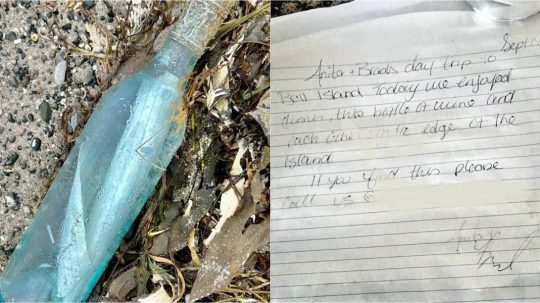 Septe
Anita + Brads day trip to
Bell Island. Today we enjoyed
dinner, this bottle of wine and
each other on the edge of the
island
If you find this please
call us @